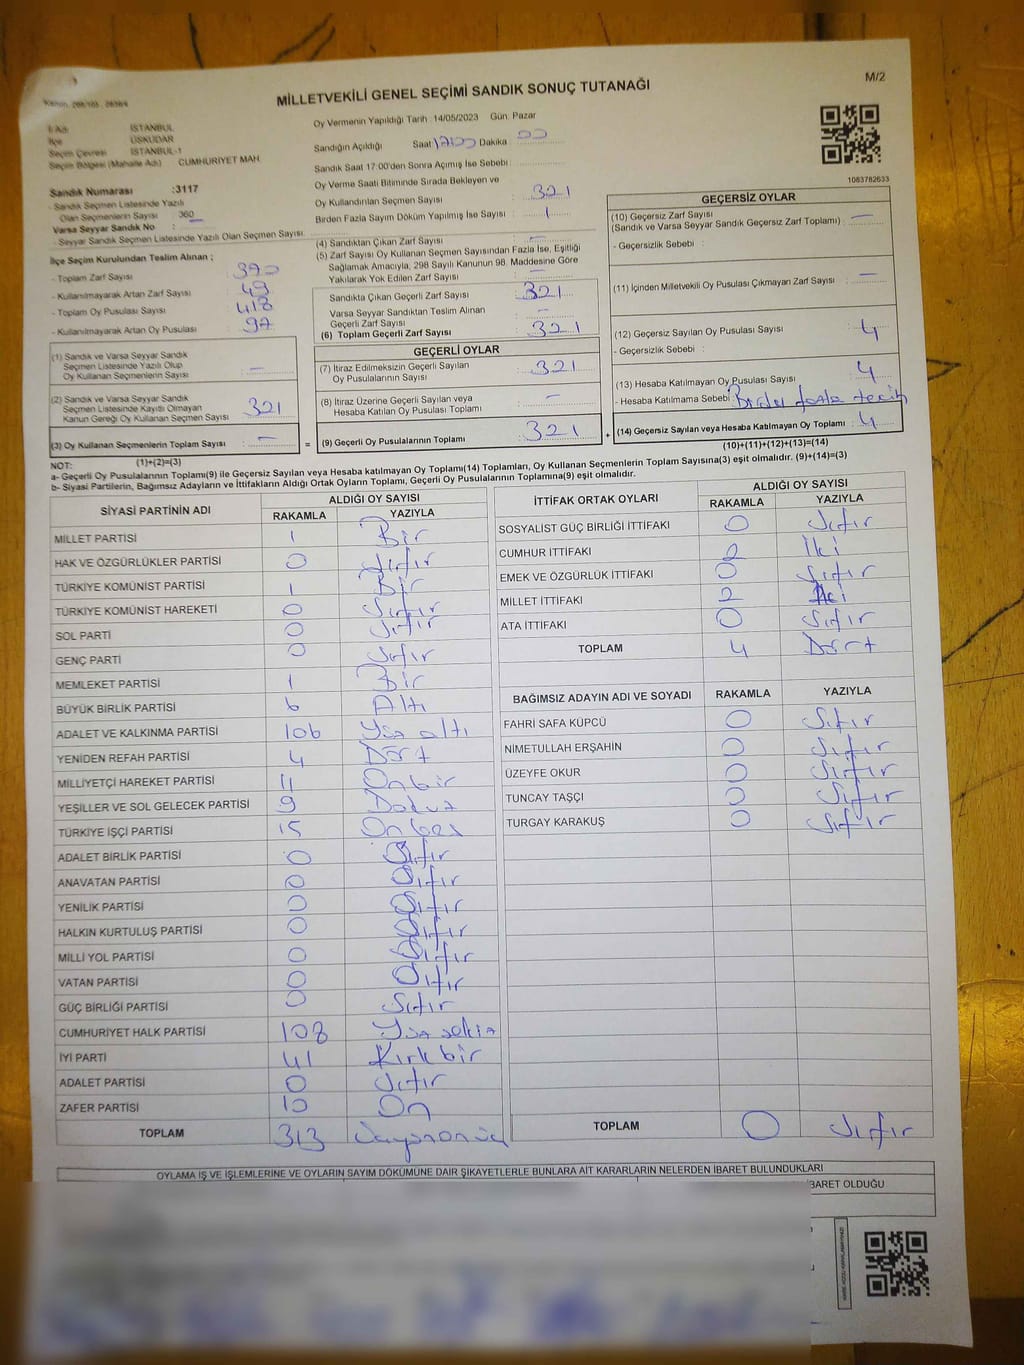 M/2
MİLLETVEKİLİ GENEL SEÇİMİ SANDIK SONUÇ TUTANAĞI
İl Adı : İSTANBUL
İlçe : ÜSKÜDAR
Seçim Çevresi : İSTANBUL-1
Seçim Bölgesi (Mahalle Adı) : CUMHURİYET MAH.
Sandık Numarası :3117
- Sandık Seçmen Listesinde Yazılı
Olan Seçmenlerin Sayısı : 360
Varsa Seyyar Sandık No :
- Seyyar Sandık Seçmen Listesinde Yazılı Olan Seçmen Sayısı:
İlçe Seçim Kurulundan Teslim Alınan ;
- Toplam Zarf Sayısı : 370
- Kullanılmayarak Artan Zarf Sayısı : 49
- Toplam Oy Pusulası Sayısı : 418
- Kullanılmayarak Artan Oy Pusulası : 97
(1) Sandık ve Varsa Seyyar Sandık
Seçmen Listesinde Yazılı Olup
Oy Kullanan Seçmenlerin Sayısı : -
(2) Sandık ve Varsa Seyyar Sandık
Seçmen Listesinde Kayıtlı Olmayan
Kanun Gereği Oy Kullanan Seçmen Sayısı : 321
(3) Oy Kullanan Seçmenlerin Toplam Sayısı : -
(1)+(2)=(3)
Oy Vermenin Yapıldığı Tarih : 14/05/2023 Gün: Pazar
Sandığın Açıldığı Saat 17:00 Dakika 00
Sandık Saat 17:00'den Sonra Açılmış İse Sebebi :
Oy Verme Saati Bitiminde Sırada Bekleyen ve
Oy Kullandırılan Seçmen Sayısı : 321
Birden Fazla Sayım Döküm Yapılmış İse Sayısı : 1
(4) Sandıktan Çıkan Zarf Sayısı : -
(5) Zarf Sayısı Oy Kullanan Seçmen Sayısından Fazla İse, Eşitliği
Sağlamak Amacıyla, 298 Sayılı Kanunun 98. Maddesine Göre
Yakılarak Yok Edilen Zarf Sayısı : -
Sandıkta Çıkan Geçerli Zarf Sayısı : 321
Varsa Seyyar Sandıktan Teslim Alınan
Geçerli Zarf Sayısı : -
(6) Toplam Geçerli Zarf Sayısı : 321
GEÇERLİ OYLAR
(7) İtiraz Edilmeksizin Geçerli Sayılan
Oy Pusulalarının Sayısı : 321
(8) İtiraz Üzerine Geçerli Sayılan veya
Hesaba Katılan Oy Pusulası Toplamı : -
= (9) Geçerli Oy Pusulalarının Toplamı : 321 +
1083782633
GEÇERSİZ OYLAR
(10) Geçersiz Zarf Sayısı : -
(Sandık ve Varsa Seyyar Sandık Geçersiz Zarf Toplamı)
- Geçersizlik Sebebi :
(11) İçinden Milletvekili Oy Pusulası Çıkmayan Zarf Sayısı : -
(12) Geçersiz Sayılan Oy Pusulası Sayısı : 4
- Geçersizlik Sebebi :
(13) Hesaba Katılmayan Oy Pusulası Sayısı : 4
- Hesaba Katılmama Sebebi : Birden fazla tercih
(14) Geçersiz Sayılan veya Hesaba Katılmayan Oy Toplamı : 4
(10)+(11)+(12)+(13)=(14)
NOT:
a- Geçerli Oy Pusulalarının Toplamı(9) ile Geçersiz Sayılan veya Hesaba katılmayan Oy Toplamı(14) Toplamları, Oy Kullanan Seçmenlerin Toplam Sayısına(3) eşit olmalıdır. (9)+(14)=(3)
b- Siyasi Partilerin, Bağımsız Adayların ve İttifakların Aldığı Ortak Oyların Toplamı, Geçerli Oy Pusulalarının Toplamına(9) eşit olmalıdır.
SİYASİ PARTİNİN ADI ALDIĞI OY SAYISI
RAKAMLA YAZIYLA
MİLLET PARTİSİ 1 Bir
HAK VE ÖZGÜRLÜKLER PARTİSİ 0 Sıfır
TÜRKİYE KOMÜNİST PARTİSİ 1 Bir
TÜRKİYE KOMÜNİST HAREKETİ 0 Sıfır
SOL PARTİ 0 Sıfır
GENÇ PARTİ 0 Sıfır
MEMLEKET PARTİSİ 1 Bir
BÜYÜK BİRLİK PARTİSİ 6 Altı
ADALET VE KALKINMA PARTİSİ 106 Yüz altı
YENİDEN REFAH PARTİSİ 4 Dört
MİLLİYETÇİ HAREKET PARTİSİ 11 Onbir
YEŞİLLER VE SOL GELECEK PARTİSİ 9 Dokuz
TÜRKİYE İŞÇİ PARTİSİ 15 Onbeş
ADALET BİRLİK PARTİSİ 0 Sıfır
ANAVATAN PARTİSİ 0 Sıfır
YENİLİK PARTİSİ 0 Sıfır
HALKIN KURTULUŞ PARTİSİ 0 Sıfır
MİLLİ YOL PARTİSİ 0 Sıfır
VATAN PARTİSİ 0 Sıfır
GÜÇ BİRLİĞİ PARTİSİ 0 Sıfır
CUMHURİYET HALK PARTİSİ 108 Yüz sekiz
İYİ PARTİ 41 Kırk bir
ADALET PARTİSİ 0 Sıfır
ZAFER PARTİSİ 10 On
TOPLAM 313 Üçyüzonüç
İTTİFAK ORTAK OYLARI ALDIĞI OY SAYISI
RAKAMLA YAZIYLA
SOSYALİST GÜÇ BİRLİĞİ İTTİFAKI 0 Sıfır
CUMHUR İTTİFAKI 2 İki
EMEK VE ÖZGÜRLÜK İTTİFAKI 0 Sıfır
MİLLET İTTİFAKI 2 İki
ATA İTTİFAKI 0 Sıfır
TOPLAM 4 Dört
BAĞIMSIZ ADAYIN ADI VE SOYADI RAKAMLA YAZIYLA
FAHRİ SAFA KÜPCÜ 0 Sıfır
NİMETULLAH ERŞAHİN 0 Sıfır
ÜZEYFE OKUR 0 Sıfır
TUNCAY TAŞÇI 0 Sıfır
TURGAY KARAKUŞ 0 Sıfır
TOPLAM 0 Sıfır
OYLAMA İŞ VE İŞLEMLERİNE VE OYLARIN SAYIM DÖKÜMÜNE DAİR ŞİKAYETLERLE BUNLARA AİT KARARLARIN NELERDEN İBARET BULUNDUKLARI
İBARET OLDUĞU